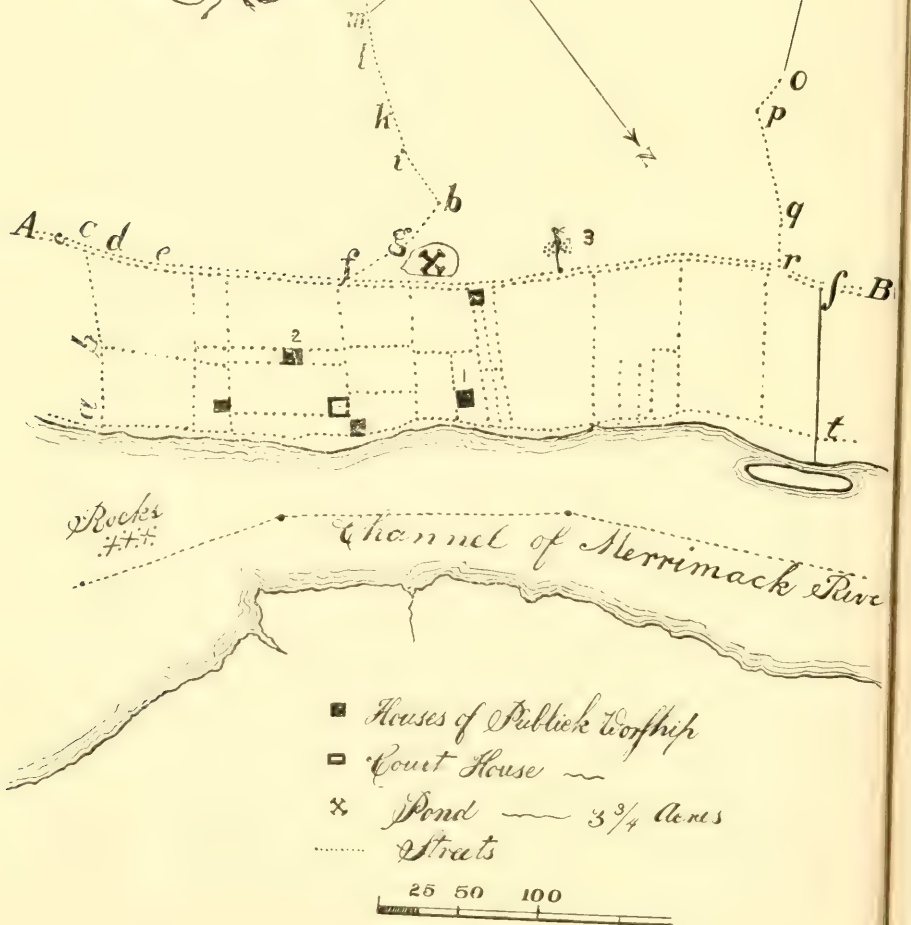 m
l
k
i
b
g
o
p
q
r
ſ B
N
3
A c d e f
2
b
1
a
t
Rocks
Channel of Merrimack Rive
Houses of Publick Worſhip
Court House
Pond 3 3/4 Acres
Streets
25 50 100